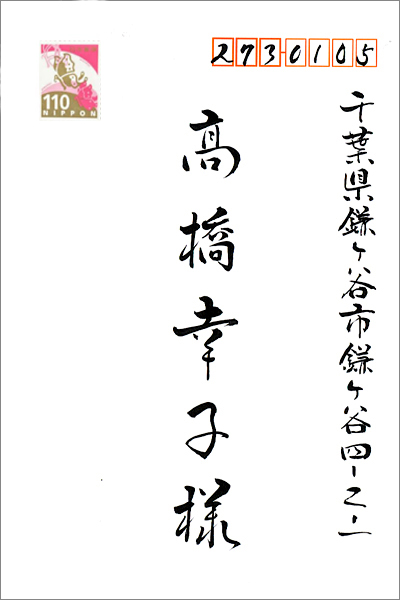 2730105
千葉県鎌ヶ谷市鎌ヶ谷四-二-一
高橋幸子様
110
NIPPON